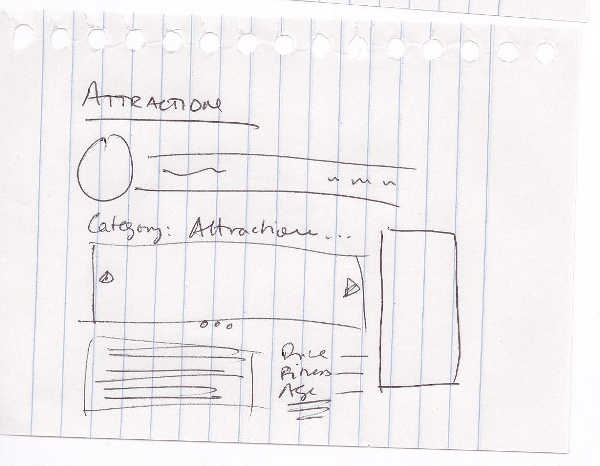 ATTRACTION
Category: Attraction...
Price
Fitness
Age